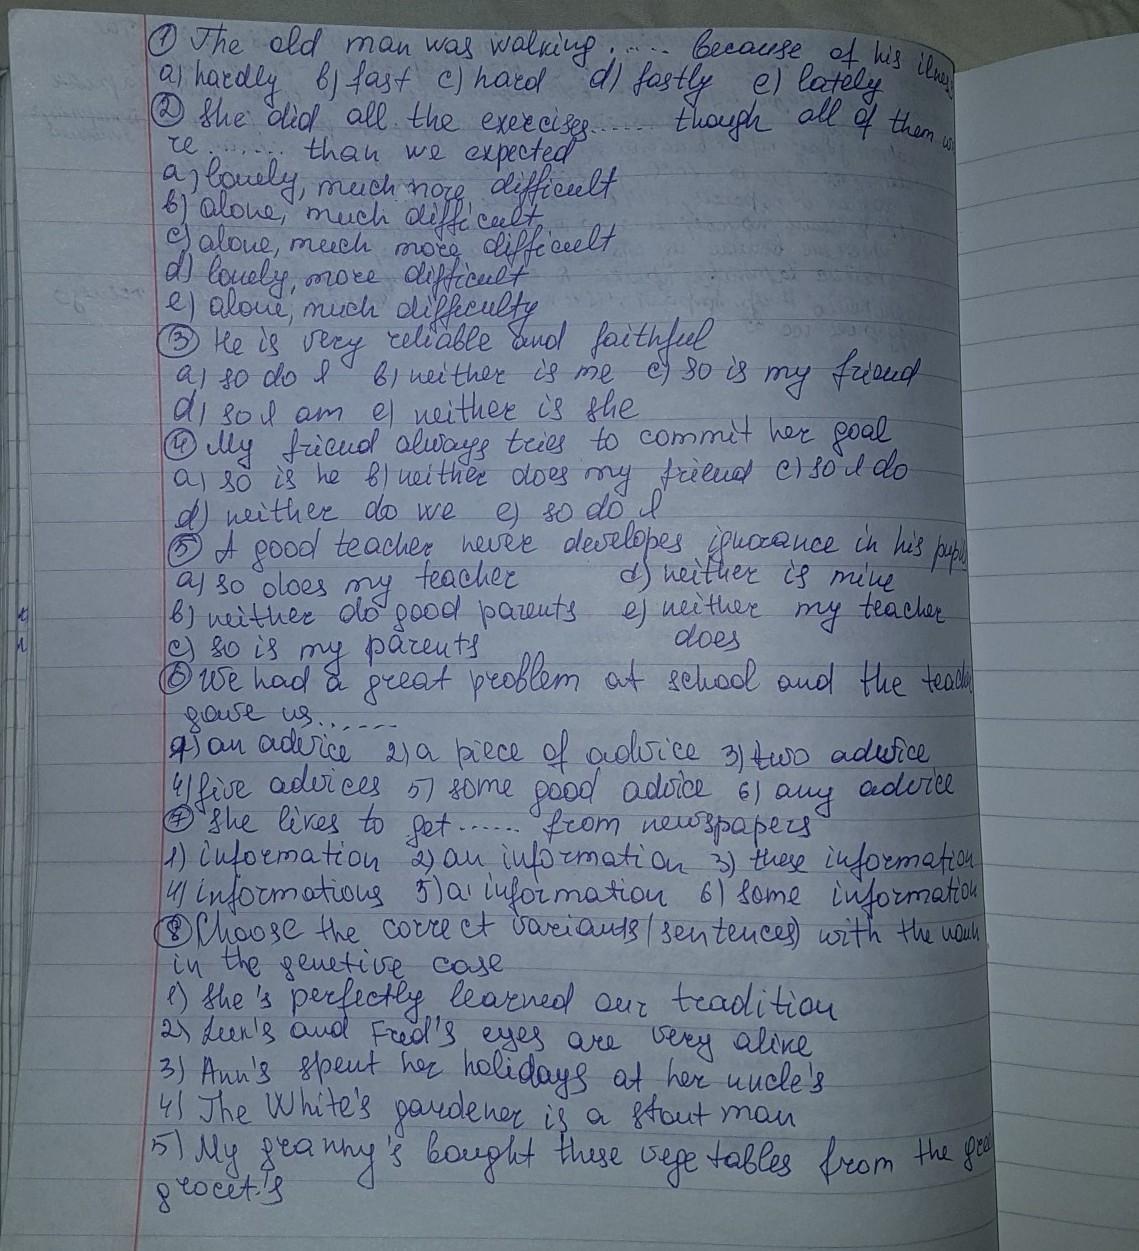 ① The old man was walking ..... because of his ilness
a) hardly b) fast c) hard d) fastly e) lately
② She did all the exercises ..... though all of them we
re ....... than we expected
a) lonely, much more difficult
b) alone, much difficult
c) alone, much more difficult
d) lonely, more difficult
e) alone, much difficulty
③ He is very reliable and faithful
a) so do I b) neither is me c) so is my friend
d) so I am e) neither is she
④ My friend always tries to commit her goal
a) so is he b) neither does my friend c) so I do
d) neither do we e) so do I
⑤ A good teacher never developes ignorance in his pupils
a) so does my teacher d) neither is mine
b) neither do good parents e) neither my teacher
c) so is my parents does
⑥ We had a great problem at school and the teacher
gave us ......
1) an advice 2) a piece of advice 3) two advice
4) five advices 5) some good advice 6) any advice
⑦ She likes to get ...... from newspapers
1) information 2) an information 3) these information
4) informations 5) a information 6) some information
⑧ Choose the correct variants (sentences) with the noun
in the genetive case
1) She's perfectly learned our tradition
2) and Fred's eyes are very alike
3) Ann's spent her holidays at her uncle's
4) The White's gardener is a stout man
5) My granny's bought these vegetables from the gree
grocer's